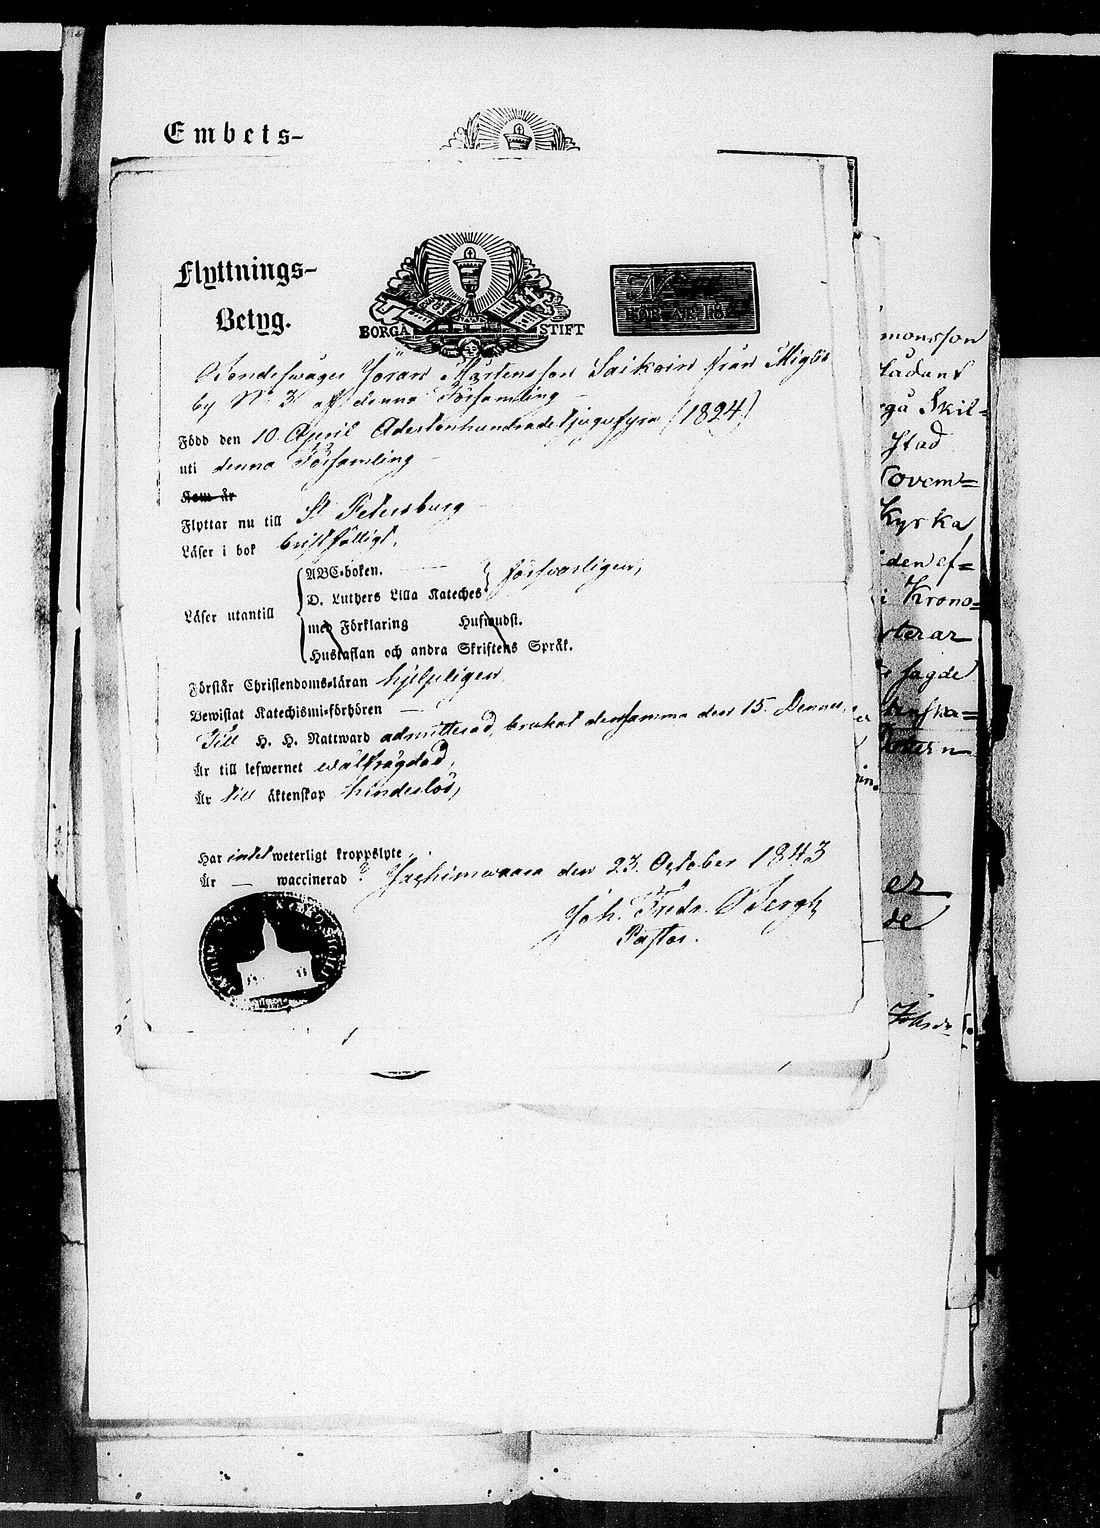 Embets-
Flyttnings-
Betyg.
BORGÅ STIFT
FÖR ÅR 18
Bondeswåger Jöran Mårtensson Saikoin från
by No 3 af denna Församling
Född den 10 April Adertonhundradetjugufyra (1824)
uti denna Församling
Kom år
Flyttar nu till St Petersburg
Läser i bok bristfälligt,
ABC-boken.
D. Luthers Lilla Kateches försvarligen,
Läser utantill
med Förklaring Husandst.
Hustaflan och andra Skriftens Språk.
Förstår Christendoms-läran hjelpligen
Bewistat Katechismi-förhören
Till H. H. Nattward admitterad, brukat densamma den 15. Dennes,
Är till lefwernet wälfrägdad,
Är till äktenskap hinderlös,
Har intet weterligt kroppslyte,
Är — waccinerad ? Jachimwaara den 23. October 1843
Joh. Fredr. Bergh
Pastor.
monsson
Skil=
stad
ovem=
Kyrka
den ef=
i Krono=
rterar
sagde
er
de